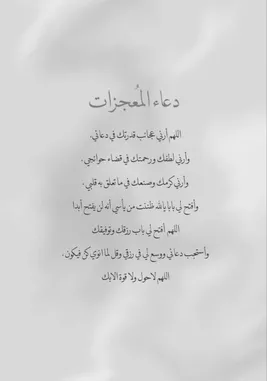 دعاء المُعجزات
اللهم أرني عجائب قدرتك في دعائي،
وأرني لطفك ورحمتك في قضاء حوائجي،
وأرني كرمك وصنعك في ما تعلق به قلبي،
وأفتح لي بابا يالله ظننت من يأسي أنه لن يفتح أبدا
اللهم أفتح لي باب رزقك وتوفيقك
وأستجب دعائي ووسع لي في رزقي وقل لما انوي كن فيكون،
اللهم لاحول ولا قوة الابك